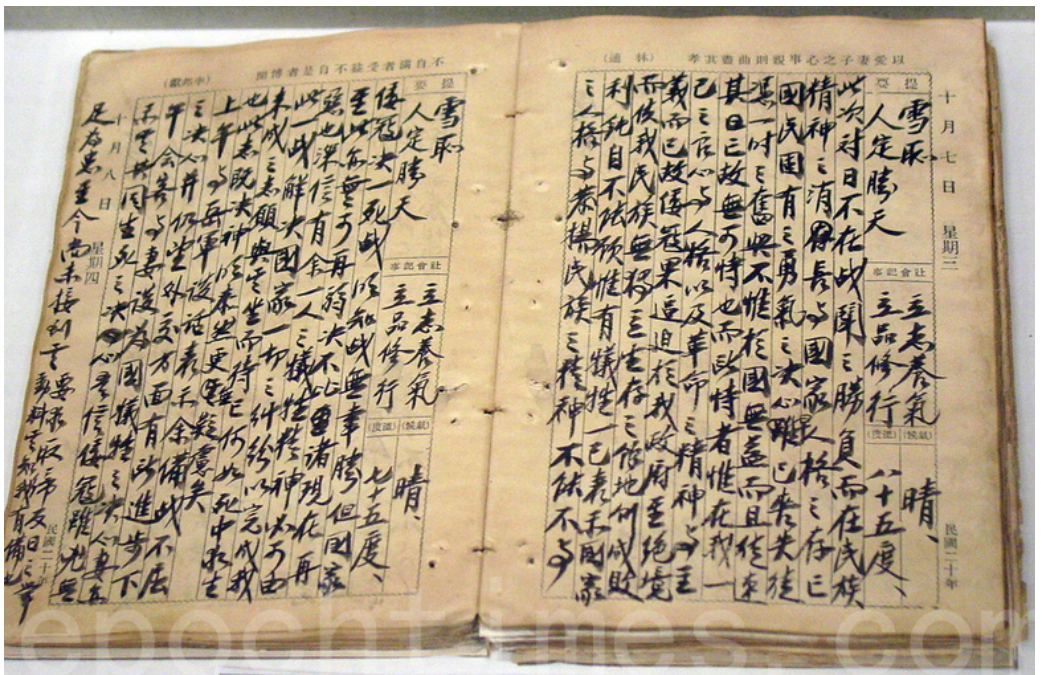 以愛妻子之心事親則曲盡其孝 (林逋)
十月七日 星期三 民國二十年
提要
雪恥
人定勝天
社會記事
立志養氣
立品修行
(氣候) (溫度)
晴、
八十五度、
此次對日不在戰鬪之勝負而在民族
精神之消長與國家人格之存亡
國民固有之勇氣之決心早已喪失徒
憑一時之奮興不惟於國無益而且徒速
其亡已故無可恃也而所恃者惟在我一
己之良心與人格以及革命之精神與主
義而已故倭寇果逼迫於我政府至絕境
而使我民族無獨立生存之餘地何成敗
利鈍自不依顧惟有犧牲一己表示國家
之人格與發揚民族之精神不能不與
不自滿者受益不自是者博聞 (李邦獻)
提要
雪恥
人定勝天
社會記事
立志養氣
立品修行
(氣候) (溫度)
晴、
七十五度、
倭寇決一死戰明知此戰無幸勝但國家
至此亦無可再弱決不諸現在再
惡也深信有余一人之犧牲精神必可由
此一戰解決國家一切之糾紛以完成我
未成之志願與其坐而待亡何如死中求生
也此志既決神明泰然更無疑慮矣
上午與軍說話表示余備戰不屈
之決心并仍望外交方面有所進步下
午會客與妻談為國犧牲之決心妻亦
示其共同生死之決心信倭寇雖兇無
十月八日 星期四 民國二十年
足為患至今尚未接到其要求取
epochtimes.com